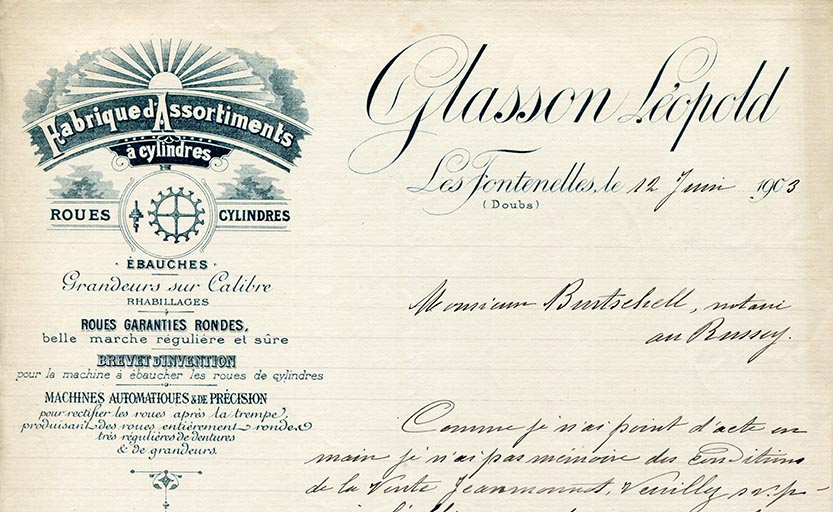 Fabrique d'Assortiments
à cylindres
ROUES CYLINDRES
ÉBAUCHES
Grandeurs sur Calibre
RHABILLAGES
ROUES GARANTIES RONDES,
belle marche régulière et sûre
BREVET D'INVENTION
pour la machine à ébaucher les roues de cylindres
MACHINES AUTOMATIQUES & DE PRÉCISION
pour rectifier les roues après la trempe,
produisant des roues entièrement rondes
très régulières de dentures
& de grandeurs.
Glasson Léopold
Les Fontenelles, le 12 Juin 1903
(Doubs)
Monsieur Burtschell, notaire
au Russey.
Comme je n'ai point d'acte en
main je n'ai pas mémoire des conditions
de la Vente Jeanmonnot, Veuilly s.v.p.